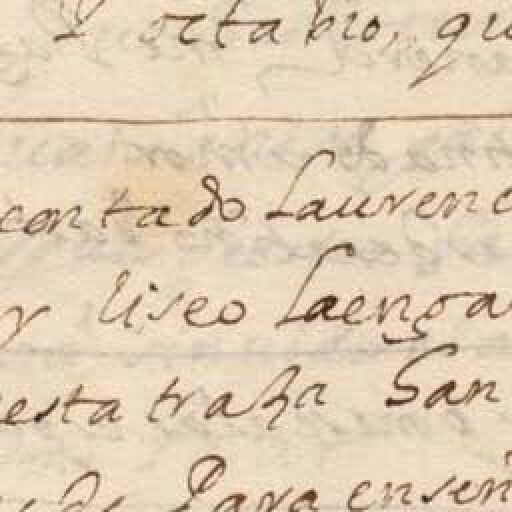 Y octabio, qu
contado Laurenc
y liseo Laenga
esta traza San
Para enseñ